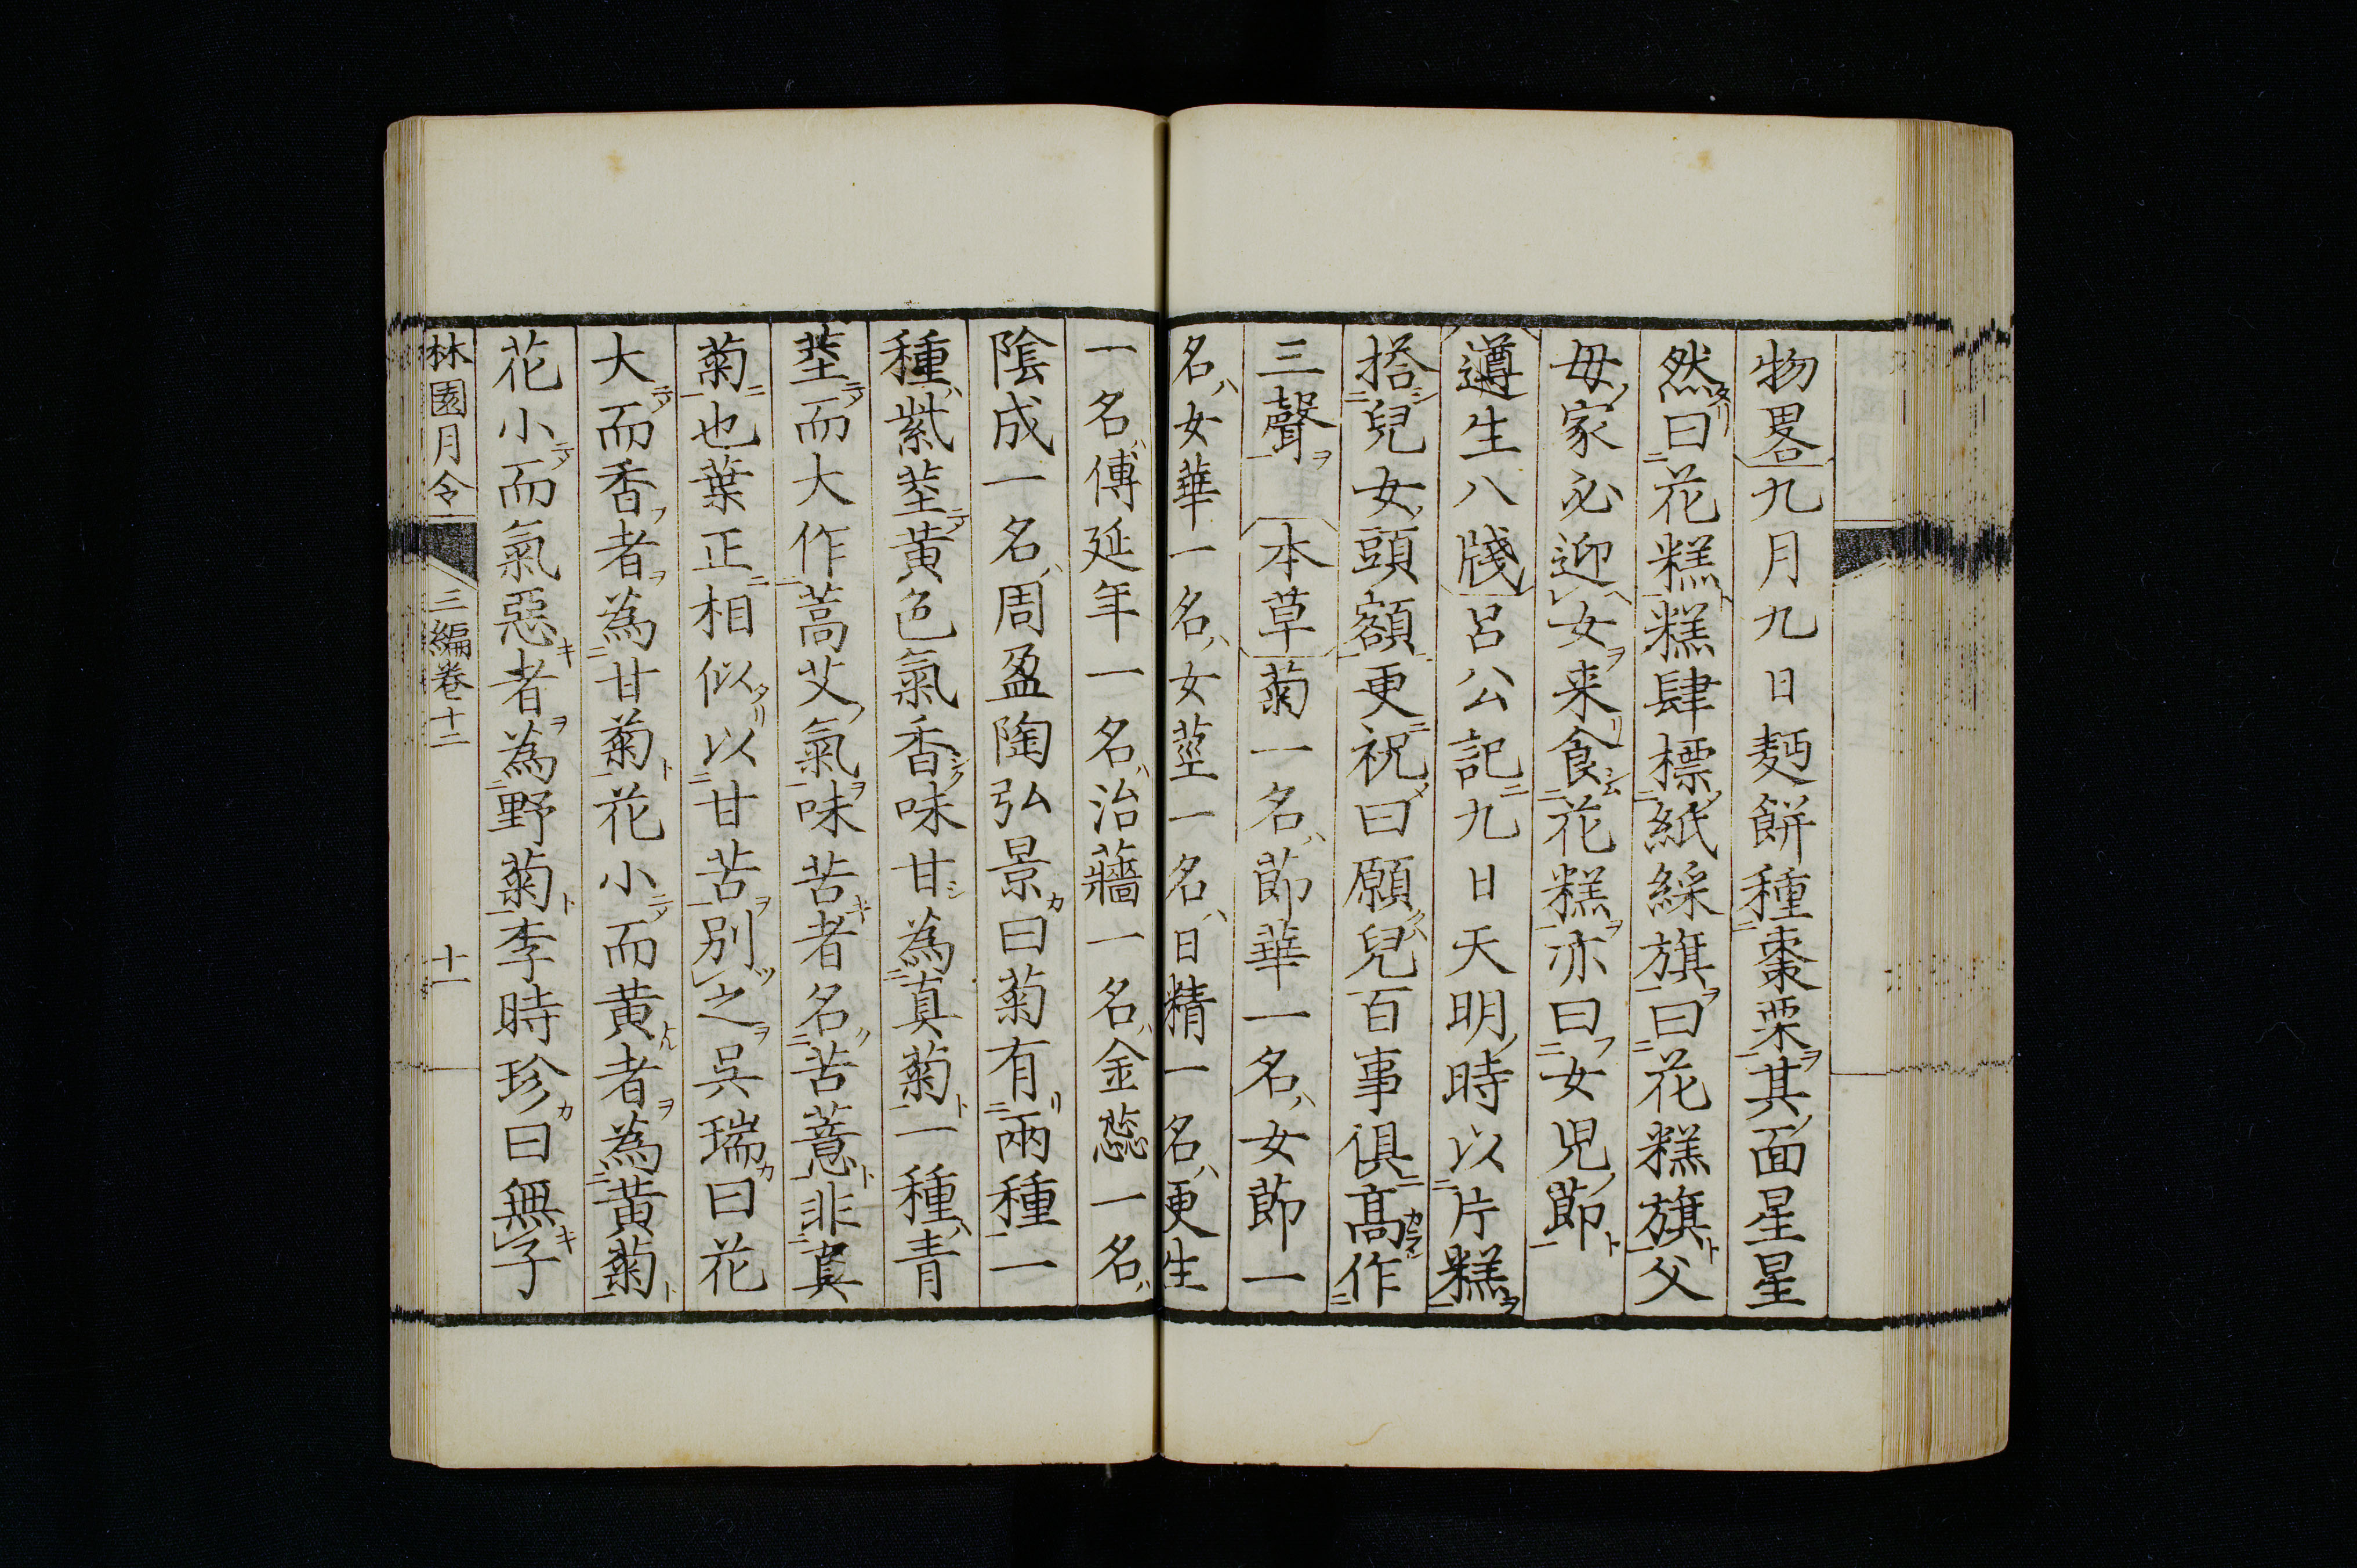 物畧九月九日麪餅種棗栗其面星星
然曰花糕糕肆標紙綵旗曰花糕旗父
毋家必迎女来食花糕亦曰女児節
遵生八牋呂公記九日天明時以片糕
搭兒女頭額更祝曰願兒百事俱高作
三聲本草菊一名節華一名女節一
名女華一名女莖一名日精一名更生
一名傅延年一名治蘠一名金蕊一名
陰成一名周盈陶弘景曰菊有兩種一
種紫莖黄色氣香味甘為真菊一種青
莖而大作蒿艾氣味苦者名苦薏非真
菊也葉正相似以甘苦別之吳瑞曰花
大而香者為甘菊花小而黄者為黄菊
花小而氣惡者為野菊李時珍曰無子
林園月令 三編卷十二 十一